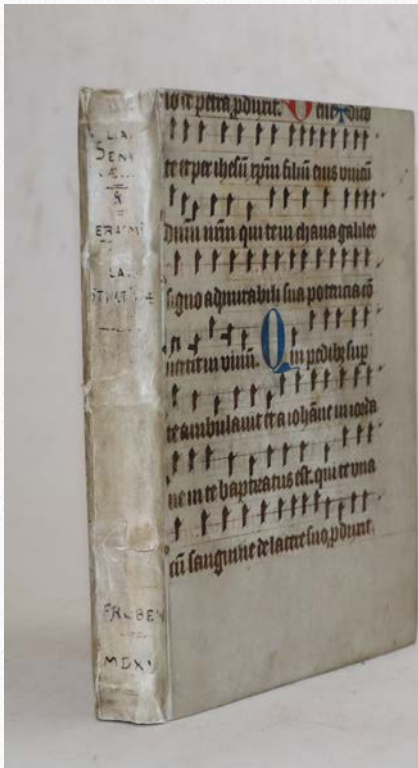 LIA
SEN
Æ
N
ERASMI
LA
FROBEN
MDX
io te petra p̱duxit. Vn̄ Bn̄dico
te et per ihesū xp̄m filiū eius vnicū
dn̄m nr̄m qui te in chana galilee
signo admirabili sua potencia cō
uertit in vinū. Qui pedibꝫ sup
te ambulauit et a iohāne in iorda
ne in te baptizatus est. qui te vna
cū sanguine de latere suo p̱duxit.